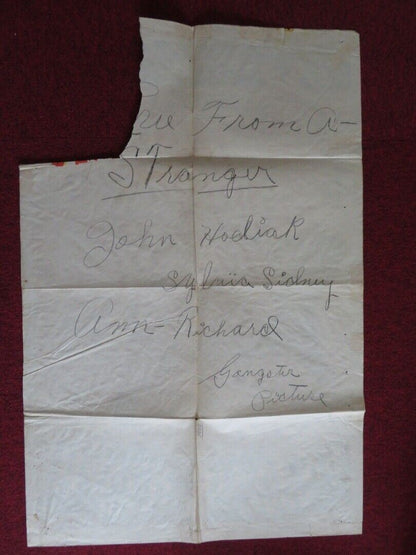 From A-
STranger
John Hodiak
Sylvia Sidney
Ann-Richard
Gangster
Picture